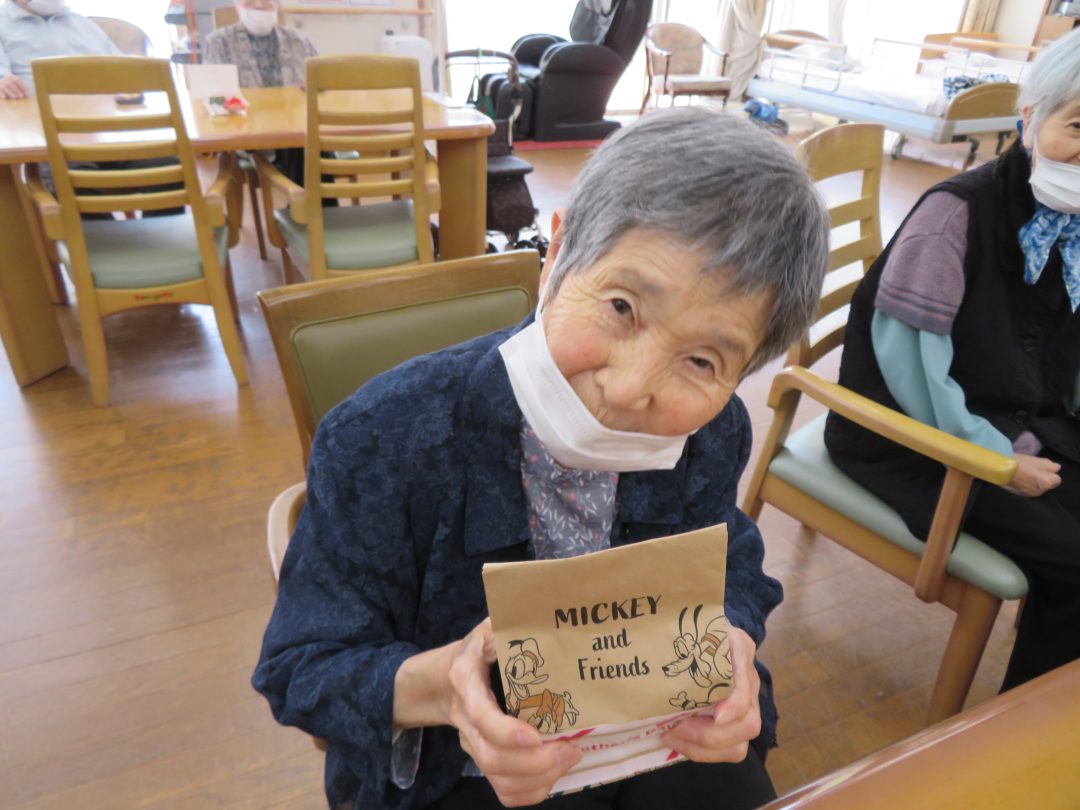 MICKEY
and
Friends
Mother's Day